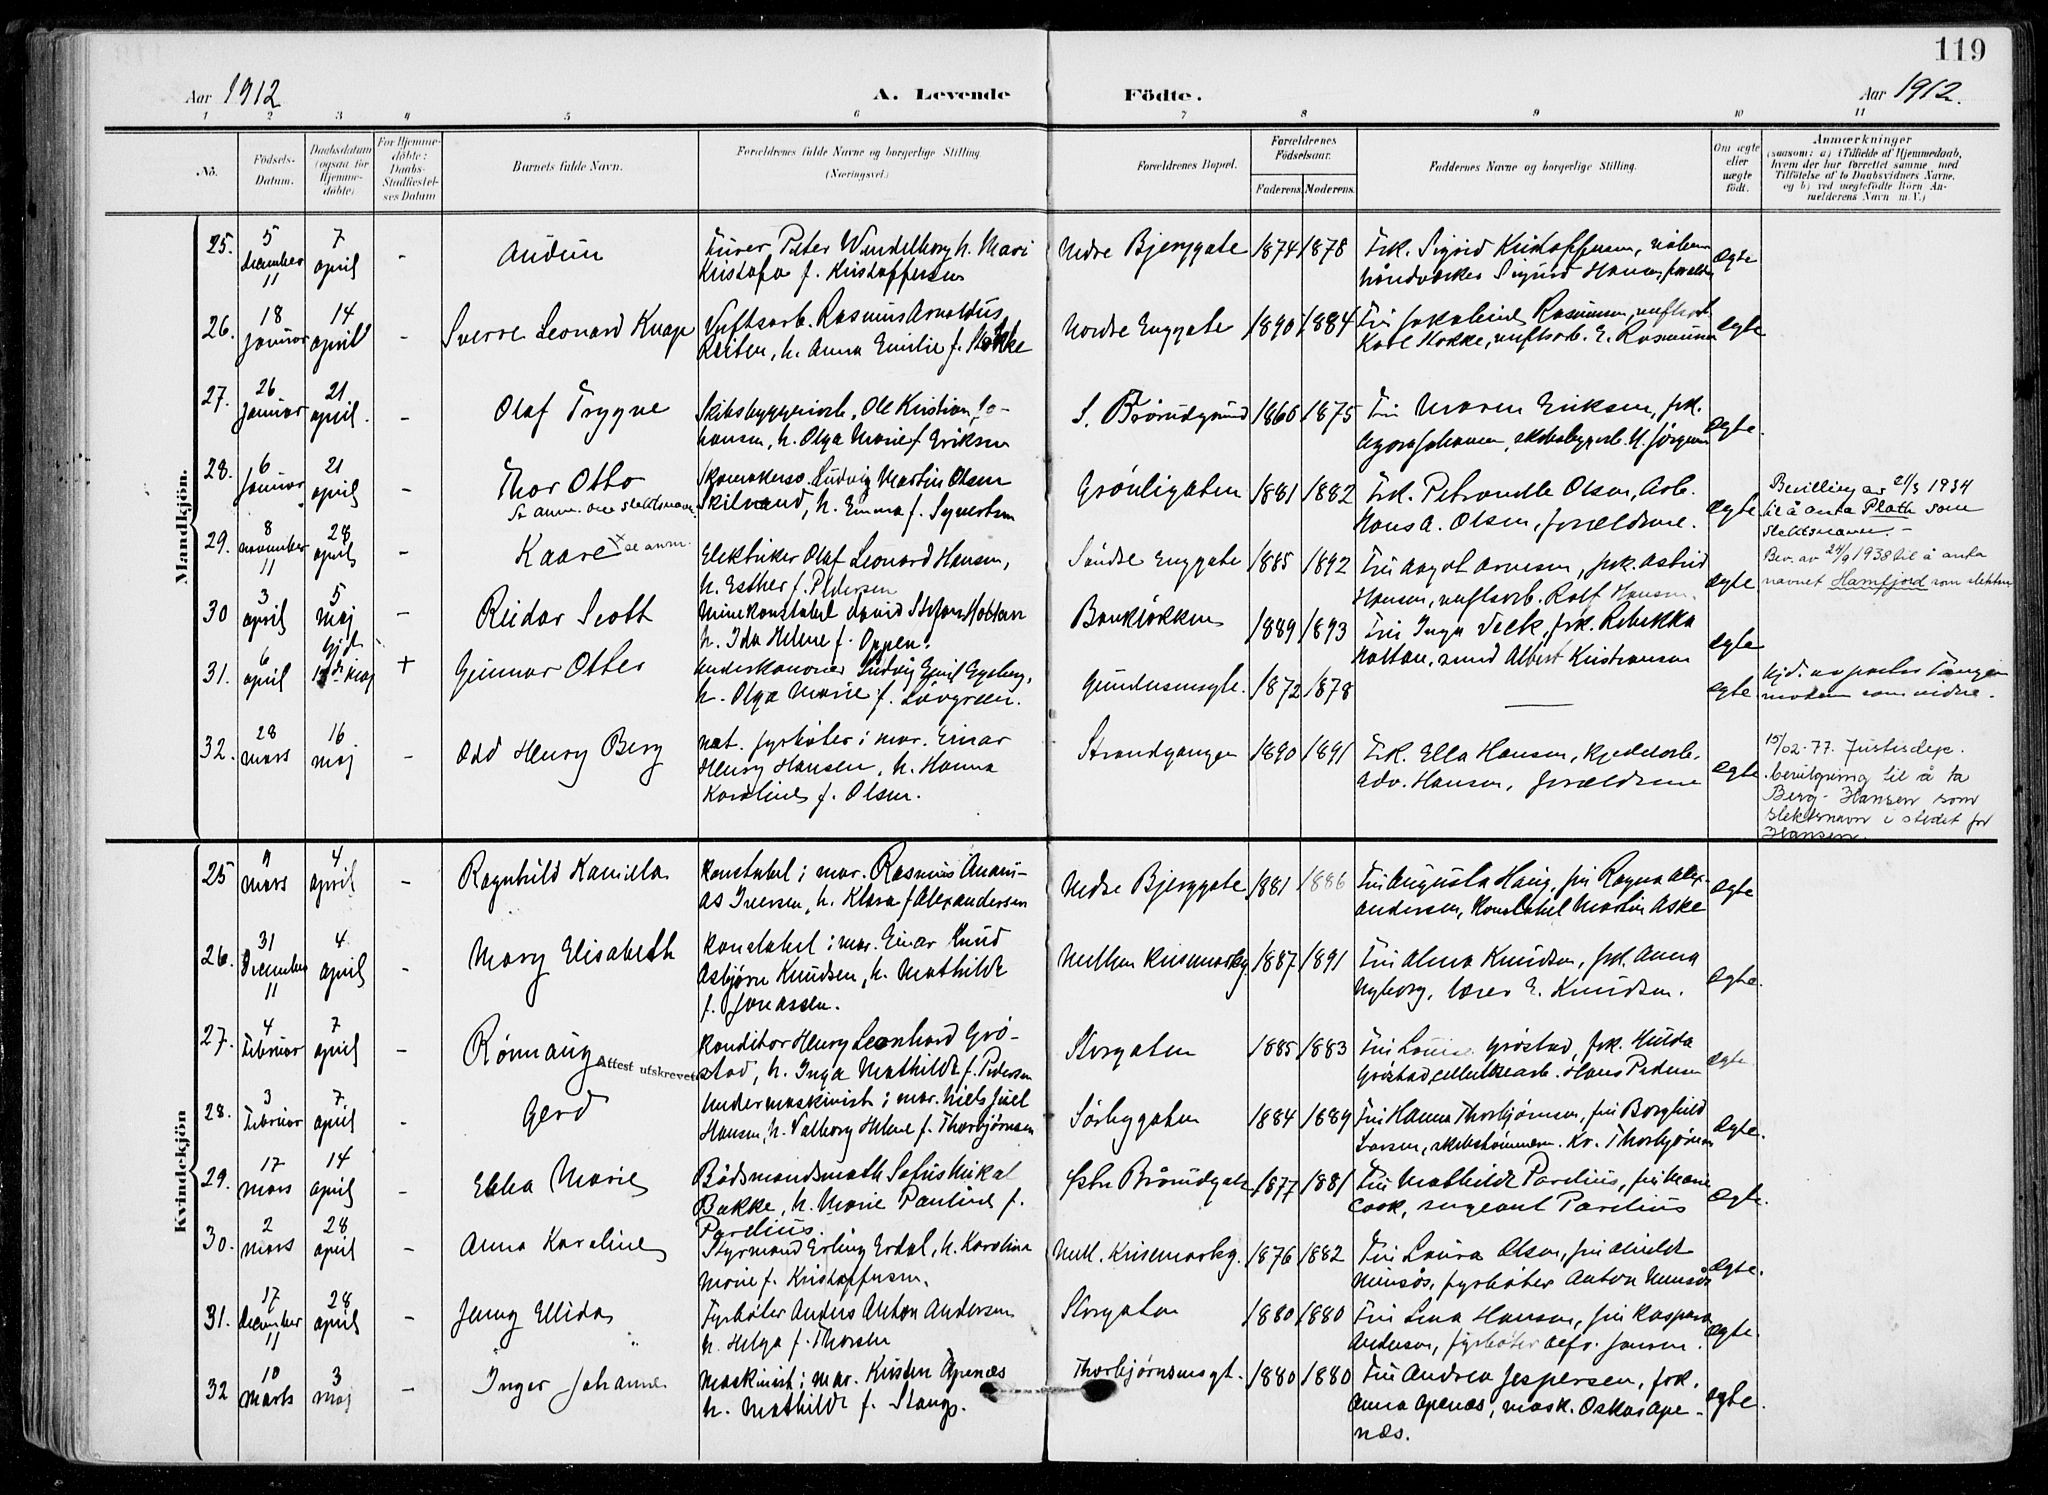 119
Aar 1912
A. Levende Födte.
Aar 1912.
1 2 3 4 5 6 7 8 9 10 11
No.
Födsels-
Datum.
Daabsdatum
(ogsaa for
Hjemme-
döbte)
For Hjemme-
döbte:
Daabs-
Stadfæstel-
ses Datum
Barnets fulde Navn.
Forældrenes fulde Navne og borgerlige Stilling.
(Næringsvei.)
Forældrenes Bopæl.
Forældrenes
Födselsaar.
Faderens. Moderens.
Faddernes Navne og borgerlige Stilling.
Om ægte
eller
uægte
født.
Anmærkninger
(saasom: a) i Tilfælde af Hjemmedaab,
hvem der har forrettet samme, med
Tilföielse af to Daabsvidners Navne.
og b) ved uægtefödte Börn An-
melderens Navn m. V.)
Mandkjön.
25. 5 december 11 7 april - Audun
Furer Peter Wendelborg h. Mari
Kristofa f. Kristoffersen
Nedre Bjerggate 1874 1878
Frk. Sigrid Kristoffersen,
Sigurd Hansen, ægte
26. 18 januar 14 april - Sverre Leonard Knap
Verftsarb. Rasmus Arnoldus
Reiten, h. Anna Emilie f. Stokke
Nordre Enggate 1890 1884
Fru Jokobine Rasmussen, verftsarb.
Karl Stokke, verftsarb. E. Rasmussen ægte
27. 26 januar 21 april. - Olaf Trygve
Skibsbyggeriarb. Ole Kristian Jo-
hansen, h. Olga Marie f. Eriksen
S. Brårudgrund 1866 1875
Fru Maren Eriksen, frk.
Agora Johansen, skibsbyggerb. H. Jörgensen ægte.
28. 6 januar 21 april - Thor Otto
Se anm. om slektsnavn.
Skomakersv. Ludvig Martin Olsen
Skilvand, h. Emma f. Syvertsen
Grönligaten 1881 1882
Frk. Petrondle Olsen, Arb.
Hans A. Olsen, forældrene. ægte
Bevilling av 21/3 1934
til å anta Plath som
slektsnavn. -
29. 8 november 11 28 april - Kaare x se anm.
Elektriker Olaf Leonard Hansen,
h. Esther f. Pedersen
Söndre Enggate 1885 1892
Fru Aagot Arnesen, frk. Astrid
Hansen, verftsarb. Rolf Hansen. ægte
Bev. av 24/9 1938 til å anta
navnet Hamfjord som slektsn
30 3 april 5 maj - Reidar Scott
Minekonstabel David Stefan Holtan
h. Ida Helene f. Oppen.
Bankløkken 1889 1893
Fru Inga Veek, frk. Rebekka
Holtan, smed Albert Kristiansen ægte
31. 6 april Gjd. maj + Gunnar Otter
Underkanoner Ludvig Emil Egeberg,
h. Olga Marie f. Lövgreen.
Gundersensgte. 1872 1878
ægte
Hjd. av pastor Tangen
moderen som vidne.
32. 28 mars 16 maj - Odd Henry Berg
Mat. fyrbøter i mar. Einar
Henry Hansen, h. Hanna
Karoline f. Olsen.
Strandgangen 1890 1891
Frk. Ella Hansen, kjedelarb.
Adv. Hansen, forældrene ægte
15/02-77. Justisdep.
bevilgning til å ta
Berg-Hansen som
slektsnavn i stedet for
Hansen.
Kvindekjön
25 9 mars 4 april - Ragnhild Kamilla
Konstabel i mar. Rasmus Anani-
as Iversen, h. Klara f Alexandersen
Nedre Bjerggate 1881 1886
Fru Augusta Haug, fru Ragna Alex-
andersen, Konstabel Martin Aske ægte
26. 31 December 11 4 april - Mary Elisabeth
Konstabel i mar. Einar Knud
Asbjørn Knudsen, h. Mathilde
f. Jonassen.
Mellem Keisemarkg 1887 1891
Fru Alma Knudsen, frk. Anna
Nyborg, lærer E. Knudsen. ægte.
27. 4 Februar 7 april - Rönnaug
Attest utskrevet
Konditor Henry Leonhard Grö-
stad, h. Inga Mathilde f. Pedersen
Storgaten 1885 1883
Fru Louise Gröstad, frk. Hulda
Gröstad, cellulosearb. Hans Pedersen ægte
28. 3 Februar 7 april - Gerd
Undermaskinist i mar. Niels Juel
Hansen, h. Valborg Helene f. Thorbjørnsen
Sörbygaten 1884 1889
Fru Hanna Thorbjørnsen, fru Borghild
Larsen, skibstömmerm. Kr. Thorbjørnsen ægte.
29. 17 mars 14 april - Ebba Marie
Bådsmandsmath Sofus Mikal
Bakke, h. Marie Pauline f.
Parelius.
Östre Brårudgate 1877 1881
Fru Mathilde Parelius, fru Marie
Cook, sergeant Parelius ægte.
30. 2 mars 28 april - Anna Karoline
Styrmand Erling Erdal, h. Karoline
Marie f. Kristoffersen.
Mell. Keisemarkg. 1876 1882
Fru Laura Olsen, fru Alvilde
Nensös, fyrbøter Anton Nensös ægte.
31. 17 december 11 28 april - Jenny Ellida
Fyrbøter Anders Anton Andersen
h. Helga f. Thorsen
Storgaten 1880 1880
Fru Lina Hansen, fru Kaspara
Andersen, fyrbøter Alfr. Jansen. ægte.
32 10 Marts 3 maj - Inger Johanne
Maskinist i mar. Kristen Apenæs
h. Mathilde f. Stang.
Thorbjørnsensgt. 1880 1880
Fru Andrea Jespersen, frk.
Anna Apenæs, mask. Oskar Ape-
næs. ægte.